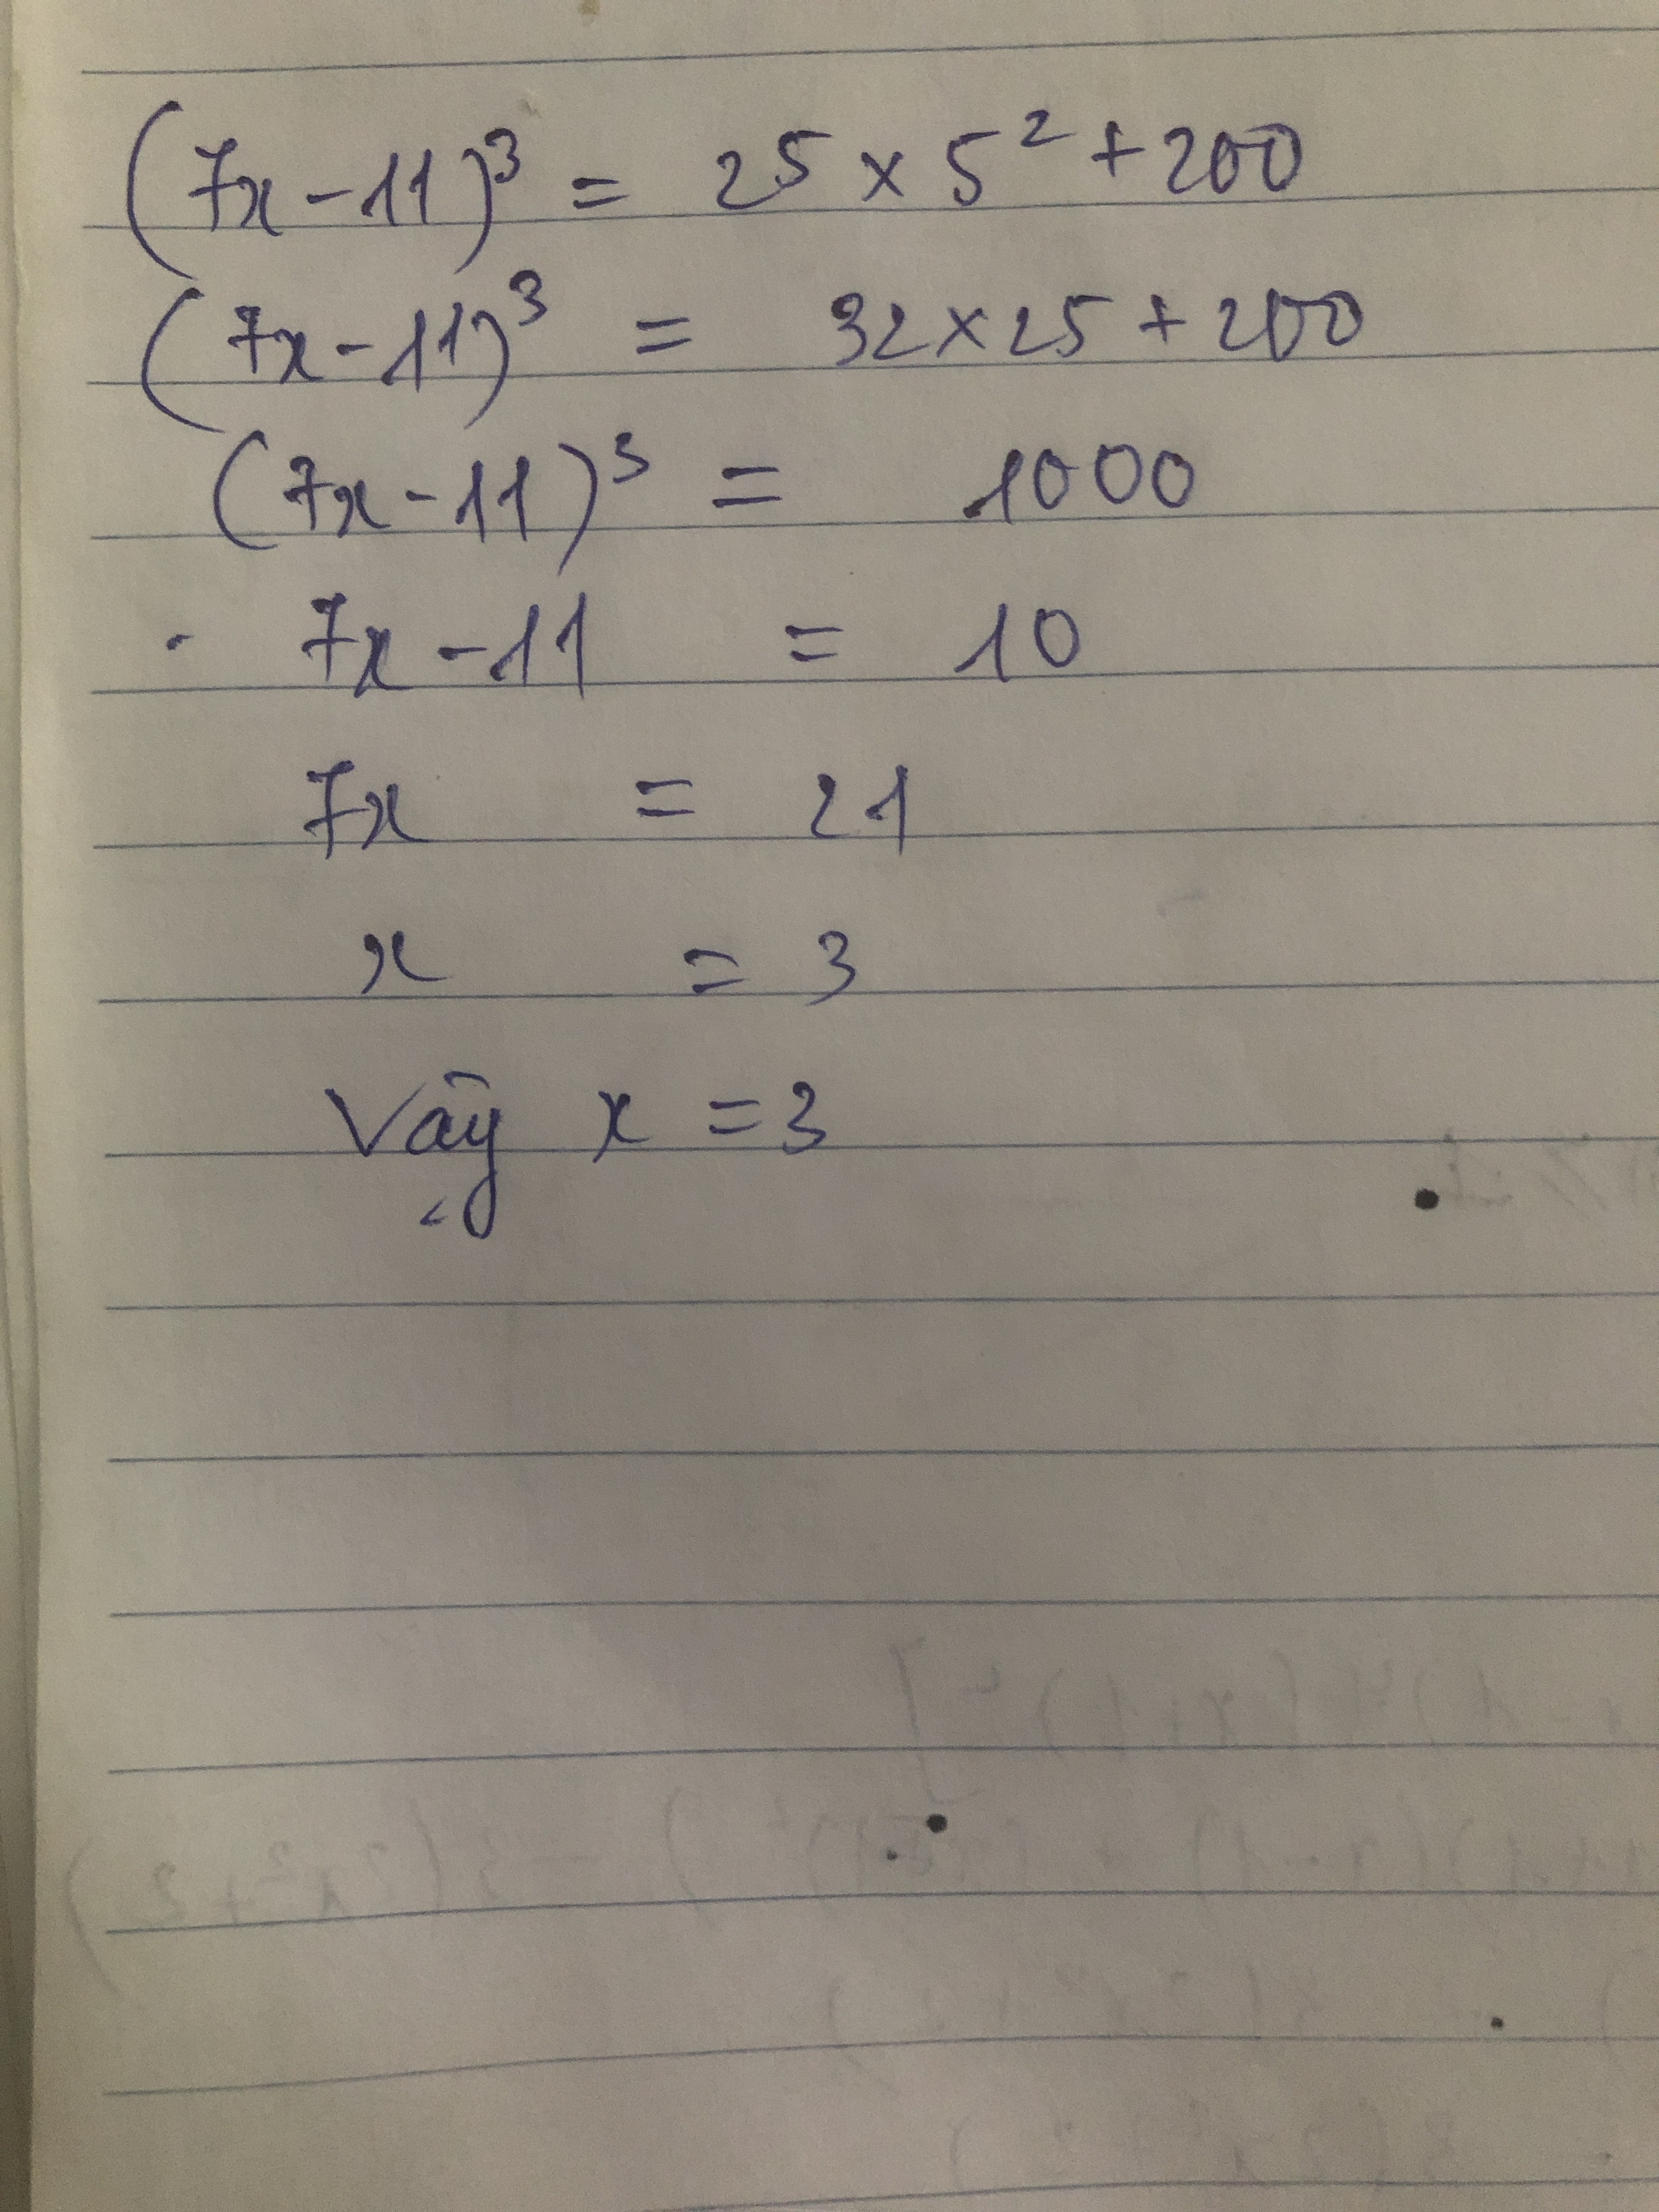 (7x-11)³ = 25 × 5² + 200
(7x-11)³ = 32×25 + 200
(7x-11)³ = 1000
7x-11 = 10
7x = 21
x = 3
Vậy x = 3